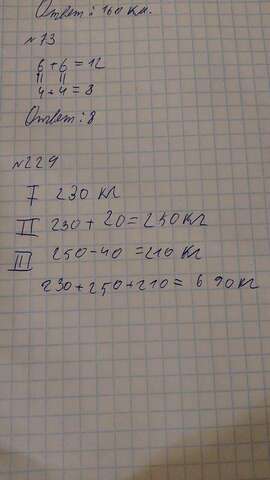 Ответ: 160 км.
№73
6+6=12
|| ||
4+4=8
Ответ: 8
№229
I 230 кг
II 230+20=250кг
III 250-40=210кг
230+250+210=690кг